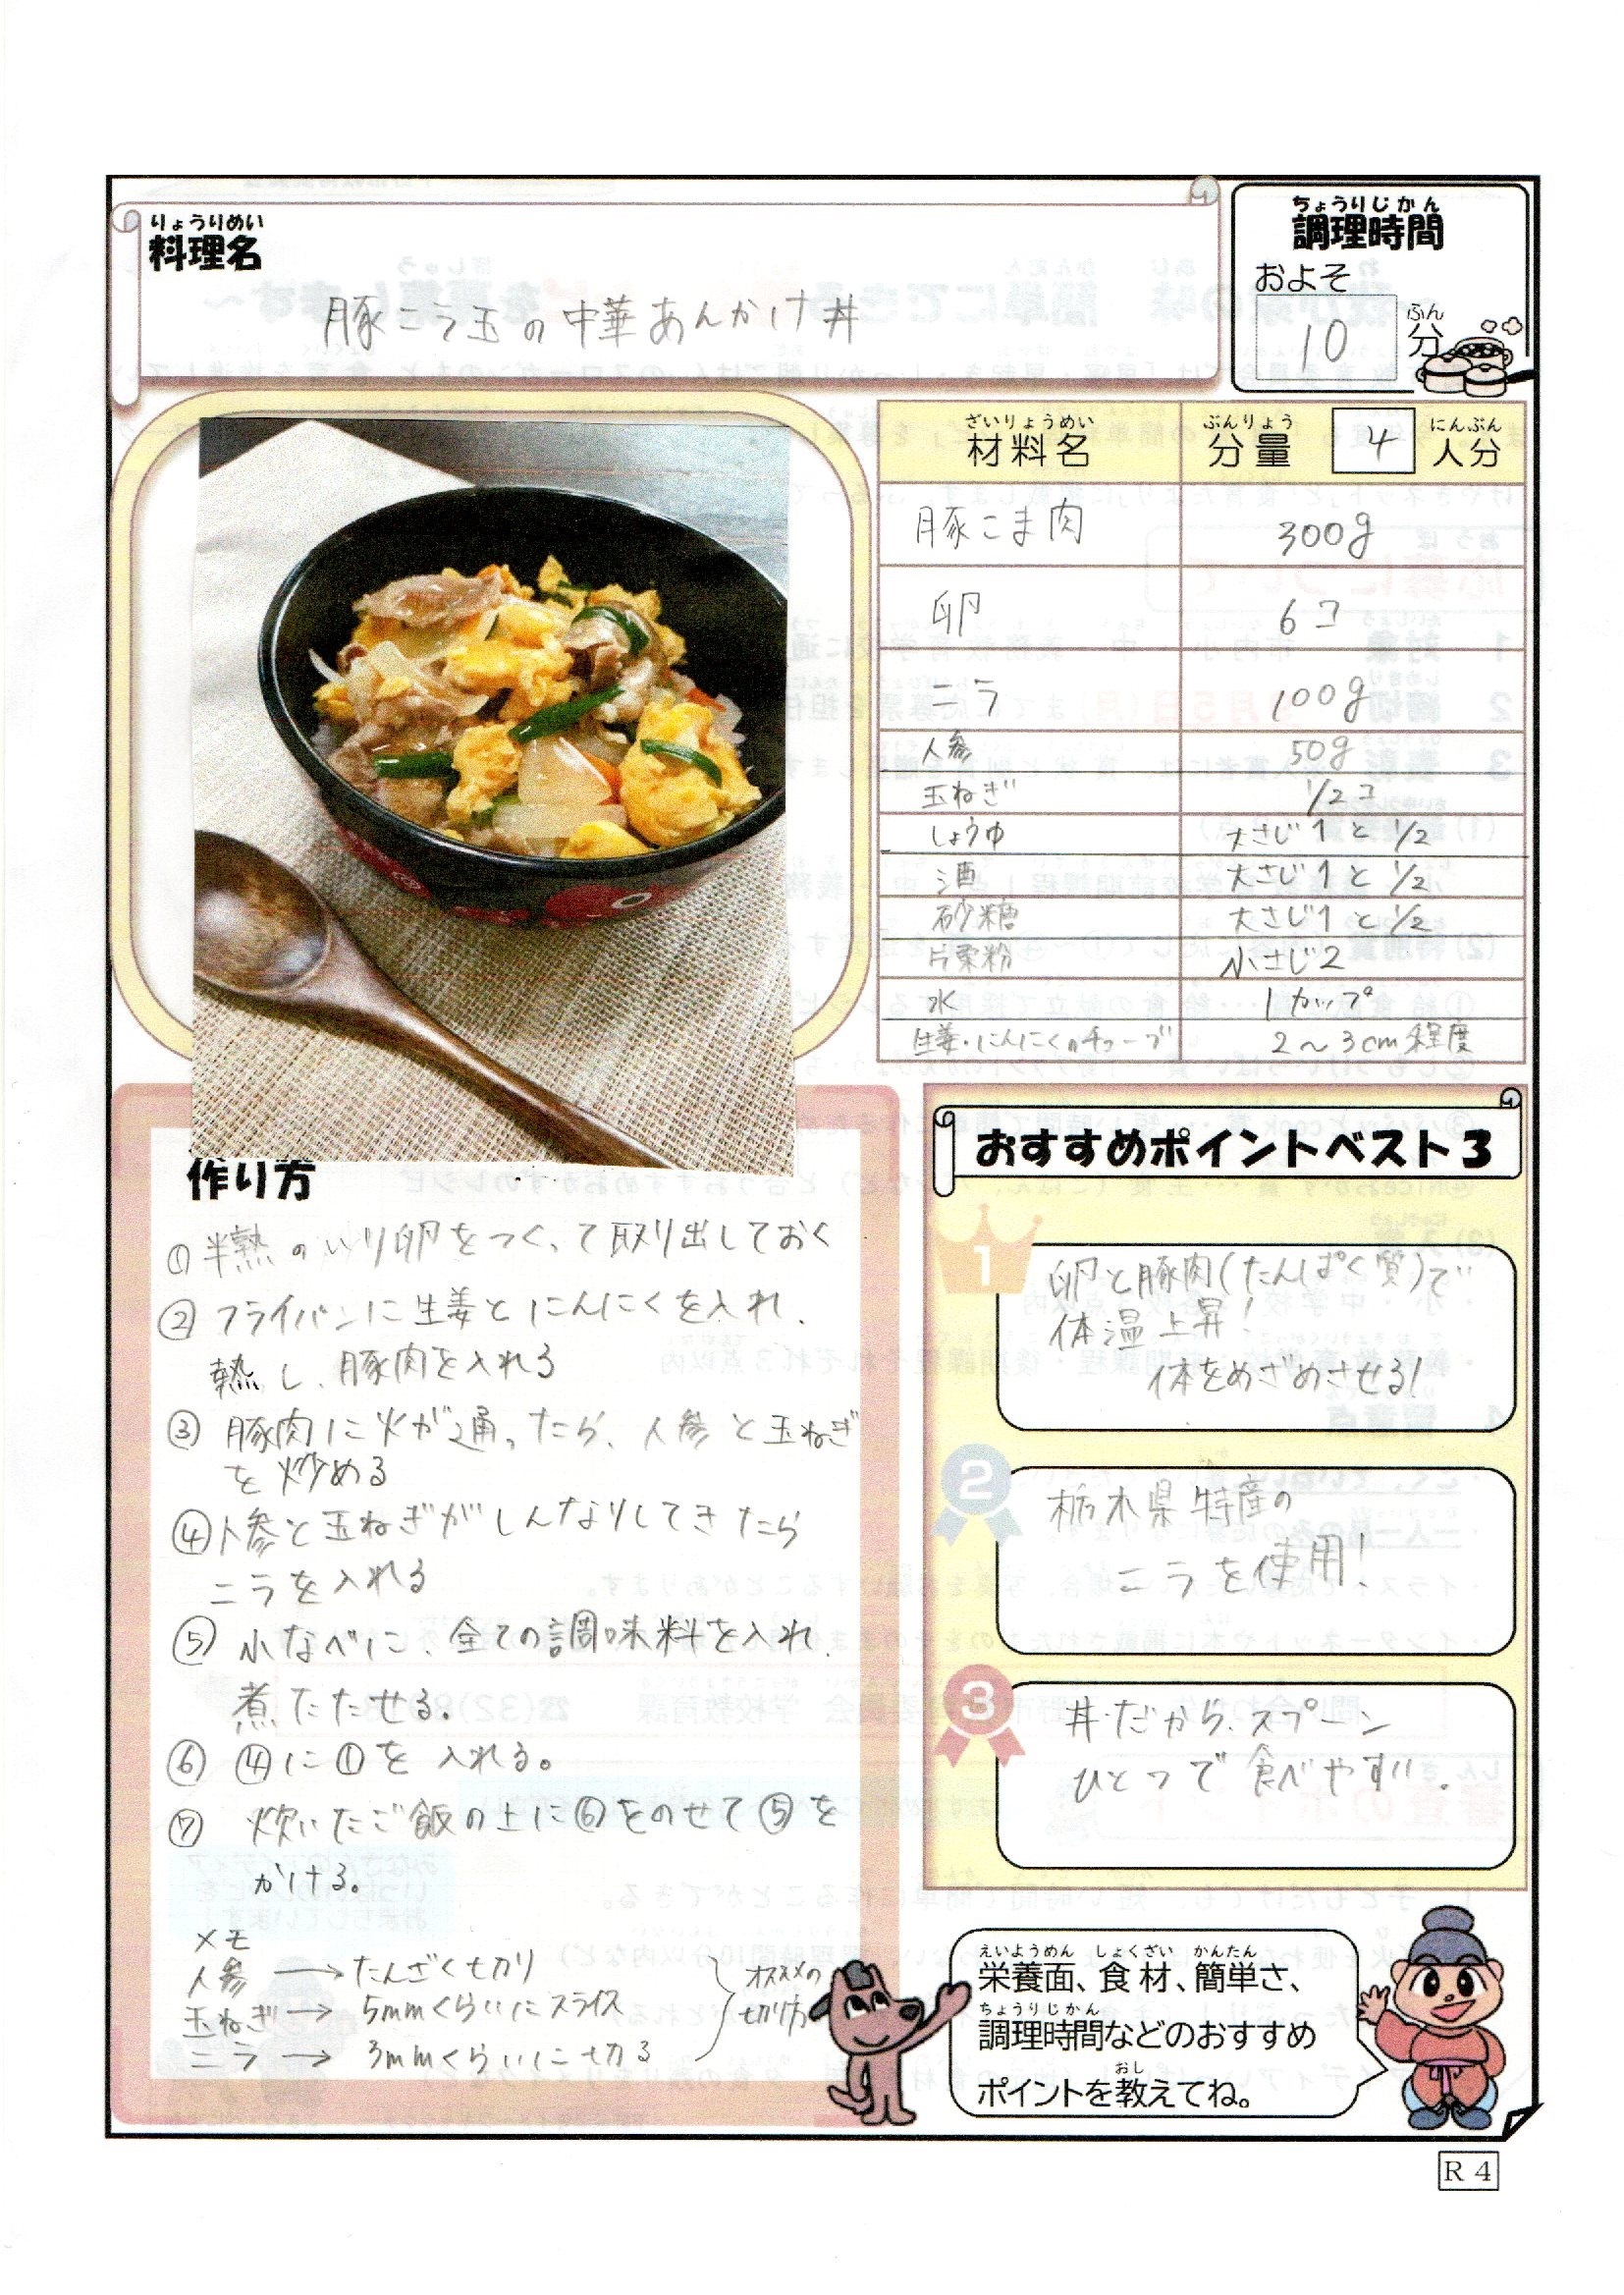 りょうりめい
料理名
豚ニラ玉の中華あんかけ丼
ちょうりじかん
調理時間
およそ
10
ふん
分
ざいりょうめい ぶんりょう にんぶん
材料名 分量 4 人分
豚こま肉 300g
卵 6コ
ニラ 100g
人参 50g
玉ねぎ 1/2コ
しょうゆ 大さじ1と1/2
酒 大さじ1と1/2
砂糖 大さじ1と1/2
片栗粉 小さじ2
水 1カップ
生姜・にんにくのチューブ 2~3cm程度
作り方
①半熟のいり卵をつくって取り出しておく
②フライパンに生姜とにんにくを入れ、
熱し、豚肉を入れる
③豚肉に火が通ったら、人参と玉ねぎ
を炒める
④人参と玉ねぎがしんなりしてきたら
ニラを入れる
⑤小なべに、全ての調味料を入れ、
煮たたせる。
⑥④に①を入れる。
⑦炊いたご飯の上に⑥をのせて⑤を
かける。
メモ
人参→たんざく切り
玉ねぎ→5mmくらいにスライス
ニラ→3mmくらいに切る
オススメの
切り方
おすすめポイントベスト3
1
卵と豚肉(たんぱく質)で
体温上昇!
体をめざめさせる!
2
栃木県特産の
ニラを使用!
3
丼だから、スプーン
ひとつで食べやすい。
えいようめん しょくざい かんたん
栄養面、食材、簡単さ、
ちょうりじかん
調理時間などのおすすめ
おし
ポイントを教えてね。
R4